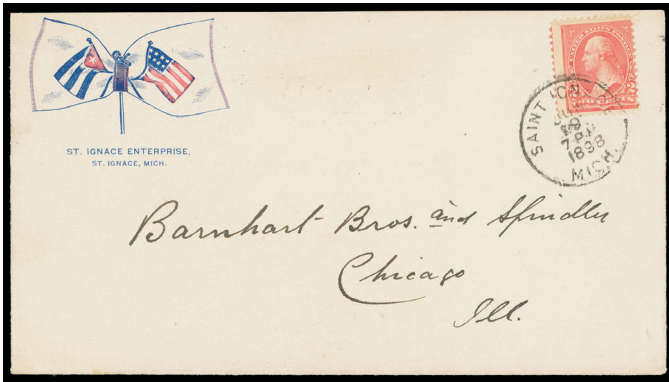 ST. IGNACE ENTERPRISE,
ST. IGNACE, MICH.
SAINT
7 P.M
1898
MICH.
Barnhart Bros. and Spindler
Chicago
Ill.